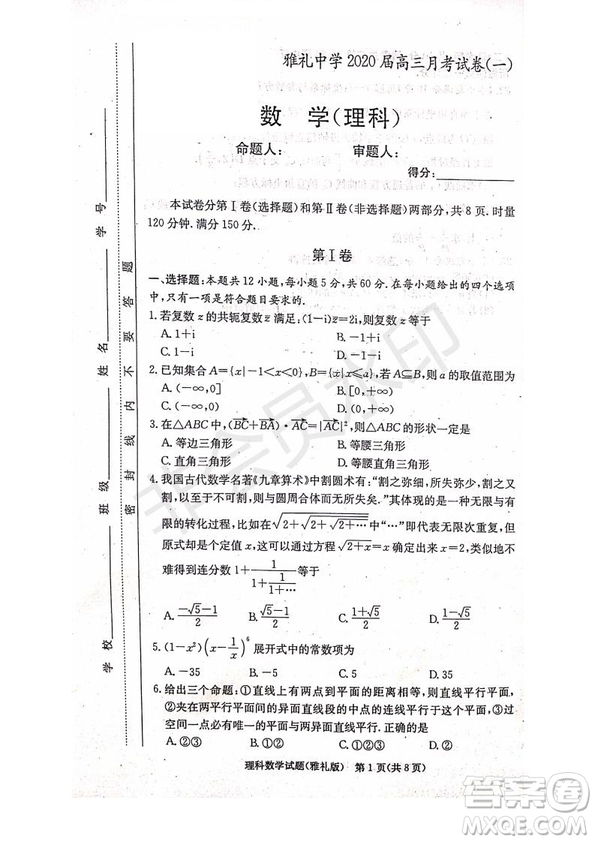 雅礼中学 2020 届高三月考试卷(一)
数 学(理科)
命题人: 审题人:
得分:
本试卷分第Ⅰ卷(选择题)和第Ⅱ卷(非选择题)两部分,共 8 页. 时量
120 分钟. 满分 150 分.
第Ⅰ卷
一、选择题:本题共 12 小题,每小题 5 分,共 60 分. 在每小题给出的四个选
项中,只有一项是符合题目要求的.
1. 若复数 z 的共轭复数 满足:(1-i)z̄=2i,则复数 z 等于
A. 1+i B. -1+i
C. 1-i D. -1-i
2. 已知集合 A={x|-1<x<0},B={x|x≤a},若 A⊆B,则 a 的取值范围为
A. (-∞,0] B. [0,+∞)
C. (-∞,0) D. (0,+∞)
3. 在△ABC 中,(BC+BA)·AC=|AC|²,则△ABC 的形状一定是
A. 等边三角形 B. 等腰三角形
C. 直角三角形 D. 等腰直角三角形
4. 我国古代数学名著《九章算术》中割圆术有:“割之弥细,所失弥少,割之又
割,以至于不可割,则与圆周合体而无所失矣.”其体现的是一种无限与有
限的转化过程,比如在√2+√2+√2+…中“…”即代表无限次重复,但
原式却是个定值 x,这可以通过方程√2+x=x 确定出来 x=2,类似地不
难得到连分数 1+1/(1+1/(1+…))等于
A. (-√5-1)/2 B. (√5-1)/2 C. (1+√5)/2 D. (1-√5)/2
5. (1-x²)(x-1/x)⁶ 展开式中的常数项为
A. -35 B. -5 C. 5 D. 35
6. 给出三个命题:①直线上有两点到平面的距离相等,则直线平行平面;
②夹在两平行平面间的两异面直线段的中点的连线平行于这个平面;③过
空间一点必有唯一的平面与两异面直线平行. 正确的是
A. ②③ B. ①② C. ② D. ①②③
理科数学试题(雅礼版) 第 1 页(共 8 页)
学 校 班 级 姓 名 学 号
密 封 线 内 不 要 答 题
非会员水印
MXQE.COM